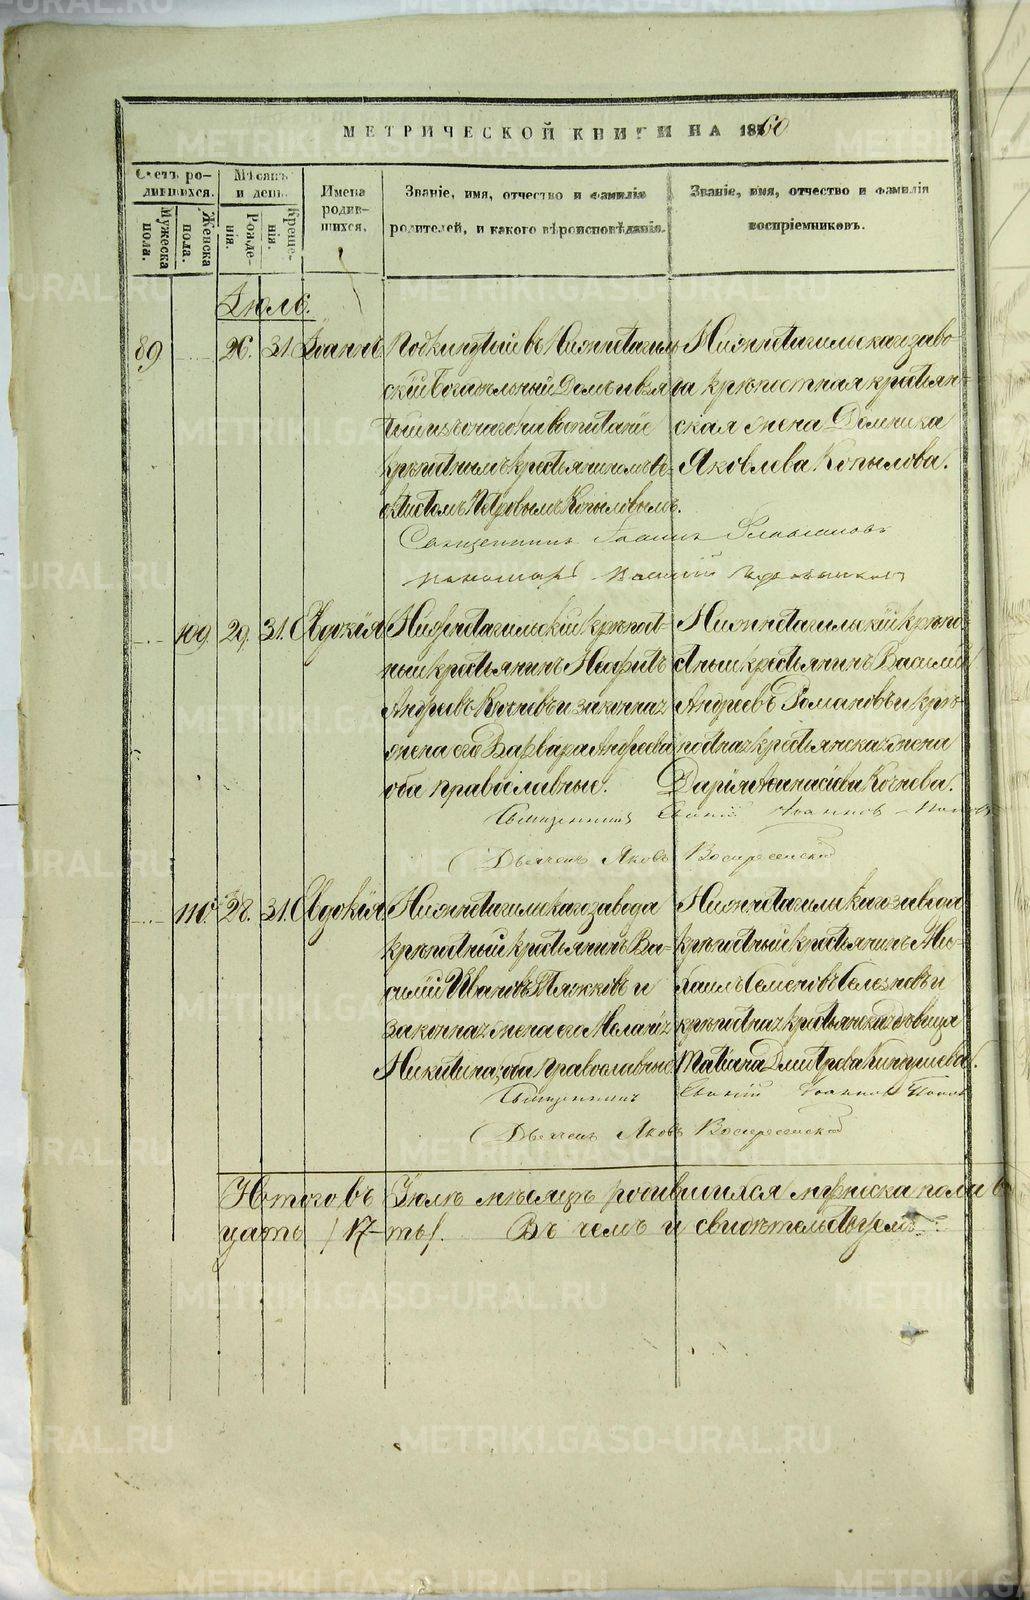 МЕТРИЧЕСКОЙ КНИГИ НА 1860
Счетъ ро-
дившихся.
Мужеска
пола.
Женска
пола.
Мѣсяцъ
и день.
Рожде-
нія.
Креще-
нія.
Имена
родив-
шихся.
Званіе, имя, отчество и фамилія
родителей, и какого вѣроисповѣданія.
Званіе, имя, отчество и фамилія
воспріемниковъ.
Іюль.
89 26. 31. Іоаннъ
Подкинутый въ Нижнетагиль-
скій Богадѣльный Домъ и взя-
тый изъ онаго на воспитаніе
крѣпостнымъ крестьяниномъ
Петровымъ Копыловымъ.
Нижнетагильскаго заво-
да крѣпостная крестьян-
ская жена Домника
Яковлева Копылова.
Священникъ Іоаннъ
пономарь Василій
109. 29. 31. Евдокія
Нижнетагильскій крѣпост-
ный крестьянинъ Неофитъ
Андреевъ Кочневъ и законная
жена его Варвара Андреева
оба православные.
Нижнетагильскій крѣпо-
стный крестьянинъ Василій
Андреевъ Романовъ и крѣ-
постная крестьянская жена
Дарія Афанасіева Кочнева.
Священникъ Евгеній Іоанновъ Поповъ
Дьячекъ Яковъ Воскресенскій
110. 28. 31. Евдокія
Нижнетагильскаго завода
крѣпостный крестьянинъ Ва-
силій Ивановъ Тяжковъ и
законная жена его Меланія
Никитина, оба православные
Нижнетагильскаго завода
крѣпостный крестьянинъ Ми-
хаилъ Семеновъ Селезневъ и
крѣпостная крестьянская дѣвица
Татіана Дмитрева
Священникъ Евгеній Іоанновъ Поповъ
Дьячекъ Яковъ Воскресенскій
Итого въ Іюлѣ мѣсяцѣ родившихся мужеска пола
цать /17-ть/. Въ чемъ и свидѣтельствуемъ:
METRIKI.GASO-URAL.RU